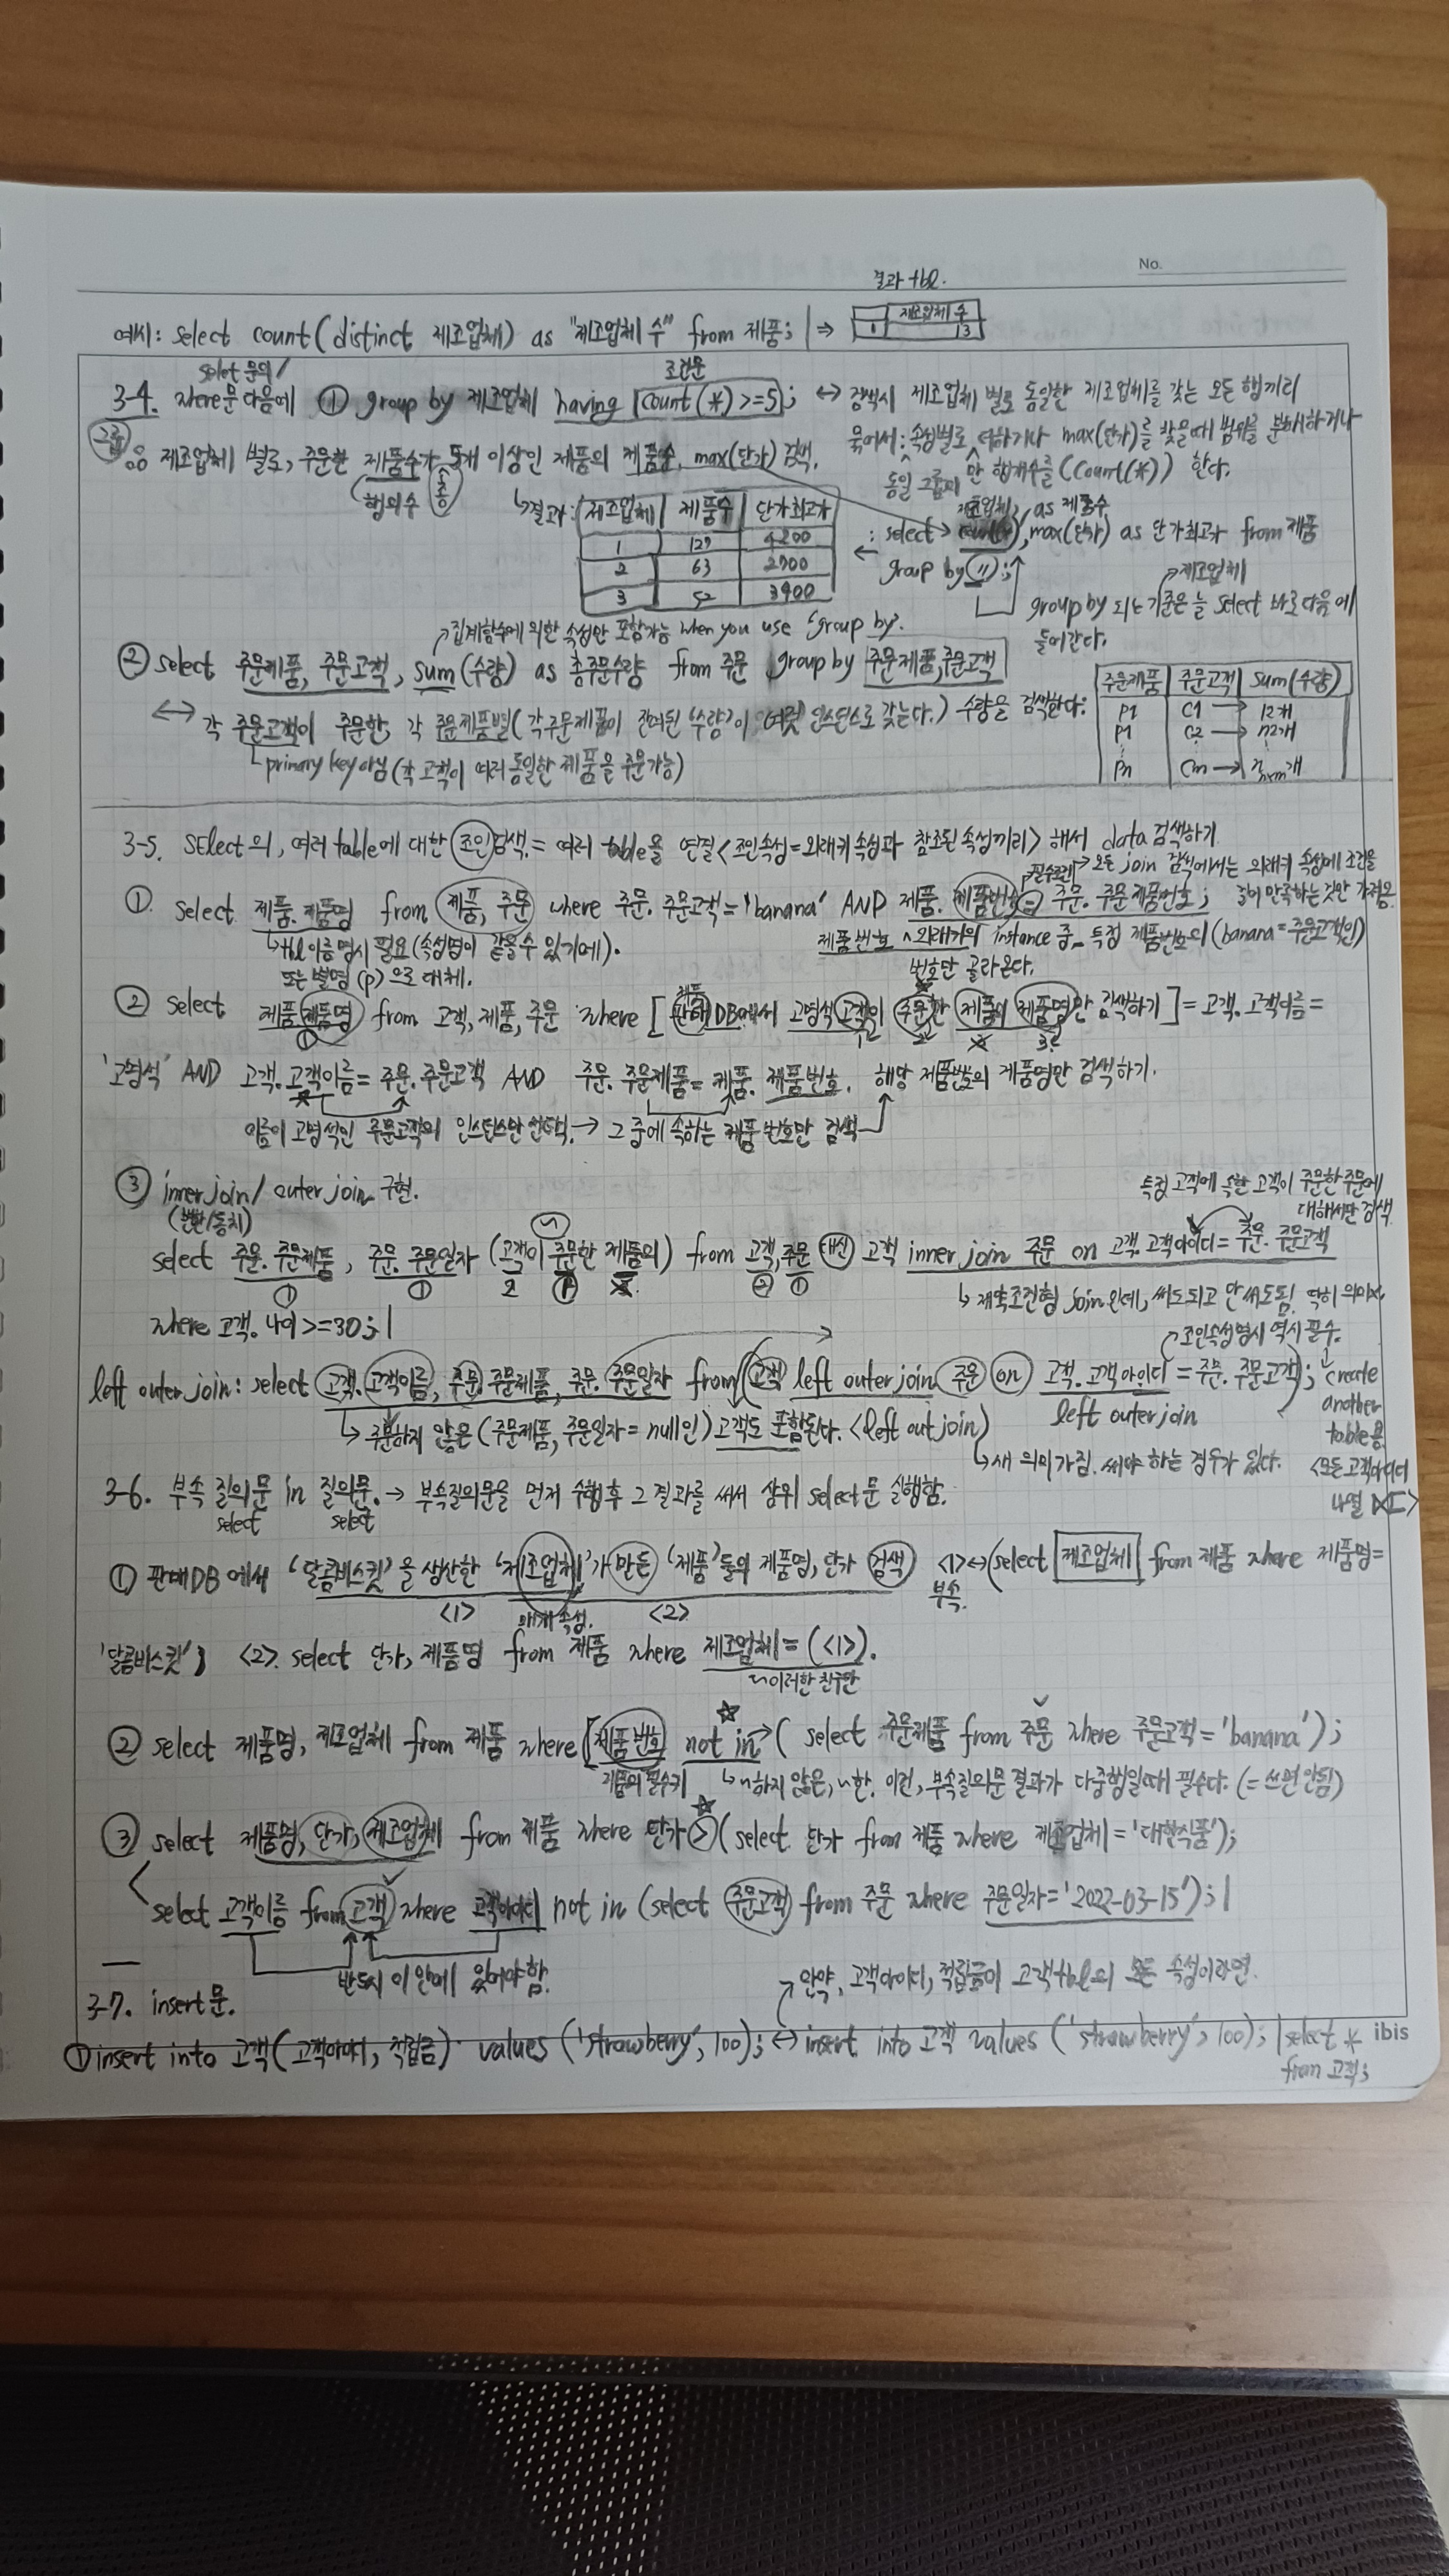 No.
결과 tbl.
예시: select count(distinct 제조업체) as "제조업체 수" from 제품; | ⇒ 제조업체 수
1 3
select 문의/ 조건문
3-4. where문 다음에 ① group by 제조업체 having count(*)>=5; ↔ 검색시 제조업체 별로 동일한 제조업체를 갖는 모든 행끼리
묶어서: 속성별로 더하거나 max(단가)를 찾을때 범위를 분배하거나
그룹 제조업체 별로, 주문한 제품수가 5개 이상인 제품의 제품수, max(단가) 검색.
동일 그룹의 만 행개수를 (count(*)) 한다.
(행의수
↳결과: 제조업체 | 제품수 | 단가최고가
1 127 4200
2 63 2700
3 52 3900
제조업체, as 제품수
: select → count(*), max(단가) as 단가최고가 from 제품
← group by (〃);
↗제조업체
group by 되는 기준은 늘 select 바로 다음에
들어간다.
↗집계함수에 의한 속성만 포함가능 when you use 'group by'.
② select 주문제품, 주문고객, sum(수량) as 총주문수량 from 주문 group by 주문제품,주문고객
↔ 각 주문고객이 주문한, 각 주문제품별(각주문제품이 '수량'이 인스턴스로 갖는다.) 수량을 검색한다:
↳primary key아님(각 고객이 여러 동일한 제품을 주문가능)
주문제품 | 주문고객 | sum(수량)
P1 C1 → 12개
P1 C2 → 12개
Pn Cm →
3-5. SElect의, 여러 table에 대한 조인검색. = 여러 table을 연결<조인속성=외래키속성과 참조된 속성끼리> 해서 data 검색하기.
필수조건 → 모든 join 검색에서는 외래키 속성에 조건을
① select 제품.제품명 from 제품, 주문 where 주문.주문고객='banana' AND 제품.제품번호=주문.주문제품번호; 만족하는 것만 가져옴.
↳tbl이름 명시 필요(속성명이 같을수 있기에).
또는 별명(p)으로 대체.
제품번호 ∧ 외래키의 instance 중, 특정 제품번호의 (banana=주문고객인)
번호만 골라온다.
② select 제품.제품명 from 고객, 제품, 주문 where [판매DB에서 고명석 고객이 주문한 제품의 제품명만 검색하기] = 고객.고객이름=
'고명석' AND 고객.고객이름=주문.주문고객 AND 주문.주문제품=제품.제품번호. 해당 제품번호의 제품명만 검색하기.
이름이 고명석인 주문고객의 인스턴스만 선택. → 그 중에 속하는 제품번호만 검색
③ inner join / outer join 구현.
특정 고객에 속한 고객이 주문한 주문에
대해서만 검색
select 주문.주문제품, 주문.주문일자 (고객이 주문한 제품의) from 고객,주문 대신 고객 inner join 주문 on 고객.고객아이디=주문.주문고객
where 고객.나이>=30; |
↳제약조건형 join인데, 써도되고 안써도됨.
↗조인속성명시 역시 필수.
left outer join: select 고객.고객이름, 주문.주문제품, 주문.주문일자 from (고객 left outer join 주문 on 고객.고객아이디=주문.주문고객);
↳주문하지 않은 (주문제품, 주문일자=null인) 고객도 포함된다. <left out join)
left outer join
↳새 의미가짐. 써야 하는 경우가 있다.
create
another
table용
<모든고객아이디
나열 ⟕>
3-6. 부속 질의문 in 질의문. → 부속질의문을 먼저 수행후 그 결과를 써서 상위 select문 실행함.
select select
① 판매DB에서 '달콤비스킷'을 생산한 '제조업체'가 만든 '제품'들의 제품명, 단가 검색 <1>↔(select 제조업체 from 제품 where 제품명=
<1> 매개속성. <2> 부속.
'달콤비스킷') <2>. select 단가, 제품명 from 제품 where 제조업체=(<1>).
~이러한 친구만
② select 제품명, 제조업체 from 제품 where [제품번호 not in → ( select 주문제품 from 주문 where 주문고객='banana');
제품의 필수키 ↳~하지 않은, ~한. 이런, 부속질의문 결과가 다중행일때 필수다. (= 쓰면 안됨)
③ select 제품명, 단가, 제조업체 from 제품 where 단가 > (select 단가 from 제품 where 제조업체='대한식품');
select 고객이름 from 고객 where 고객아이디 not in (select 주문고객 from 주문 where 주문일자='2022-03-15'); |
반드시 이 안에 있어야 함.
3-7. insert문.
↗만약, 고객아이디, 적립금이 고객tbl의 모든 속성이라면.
① insert into 고객(고객아이디, 적립금) values ('strawberry', 100); ↔ insert into 고객 values ('strawberry', 100); | select *
from 고객;
ibis